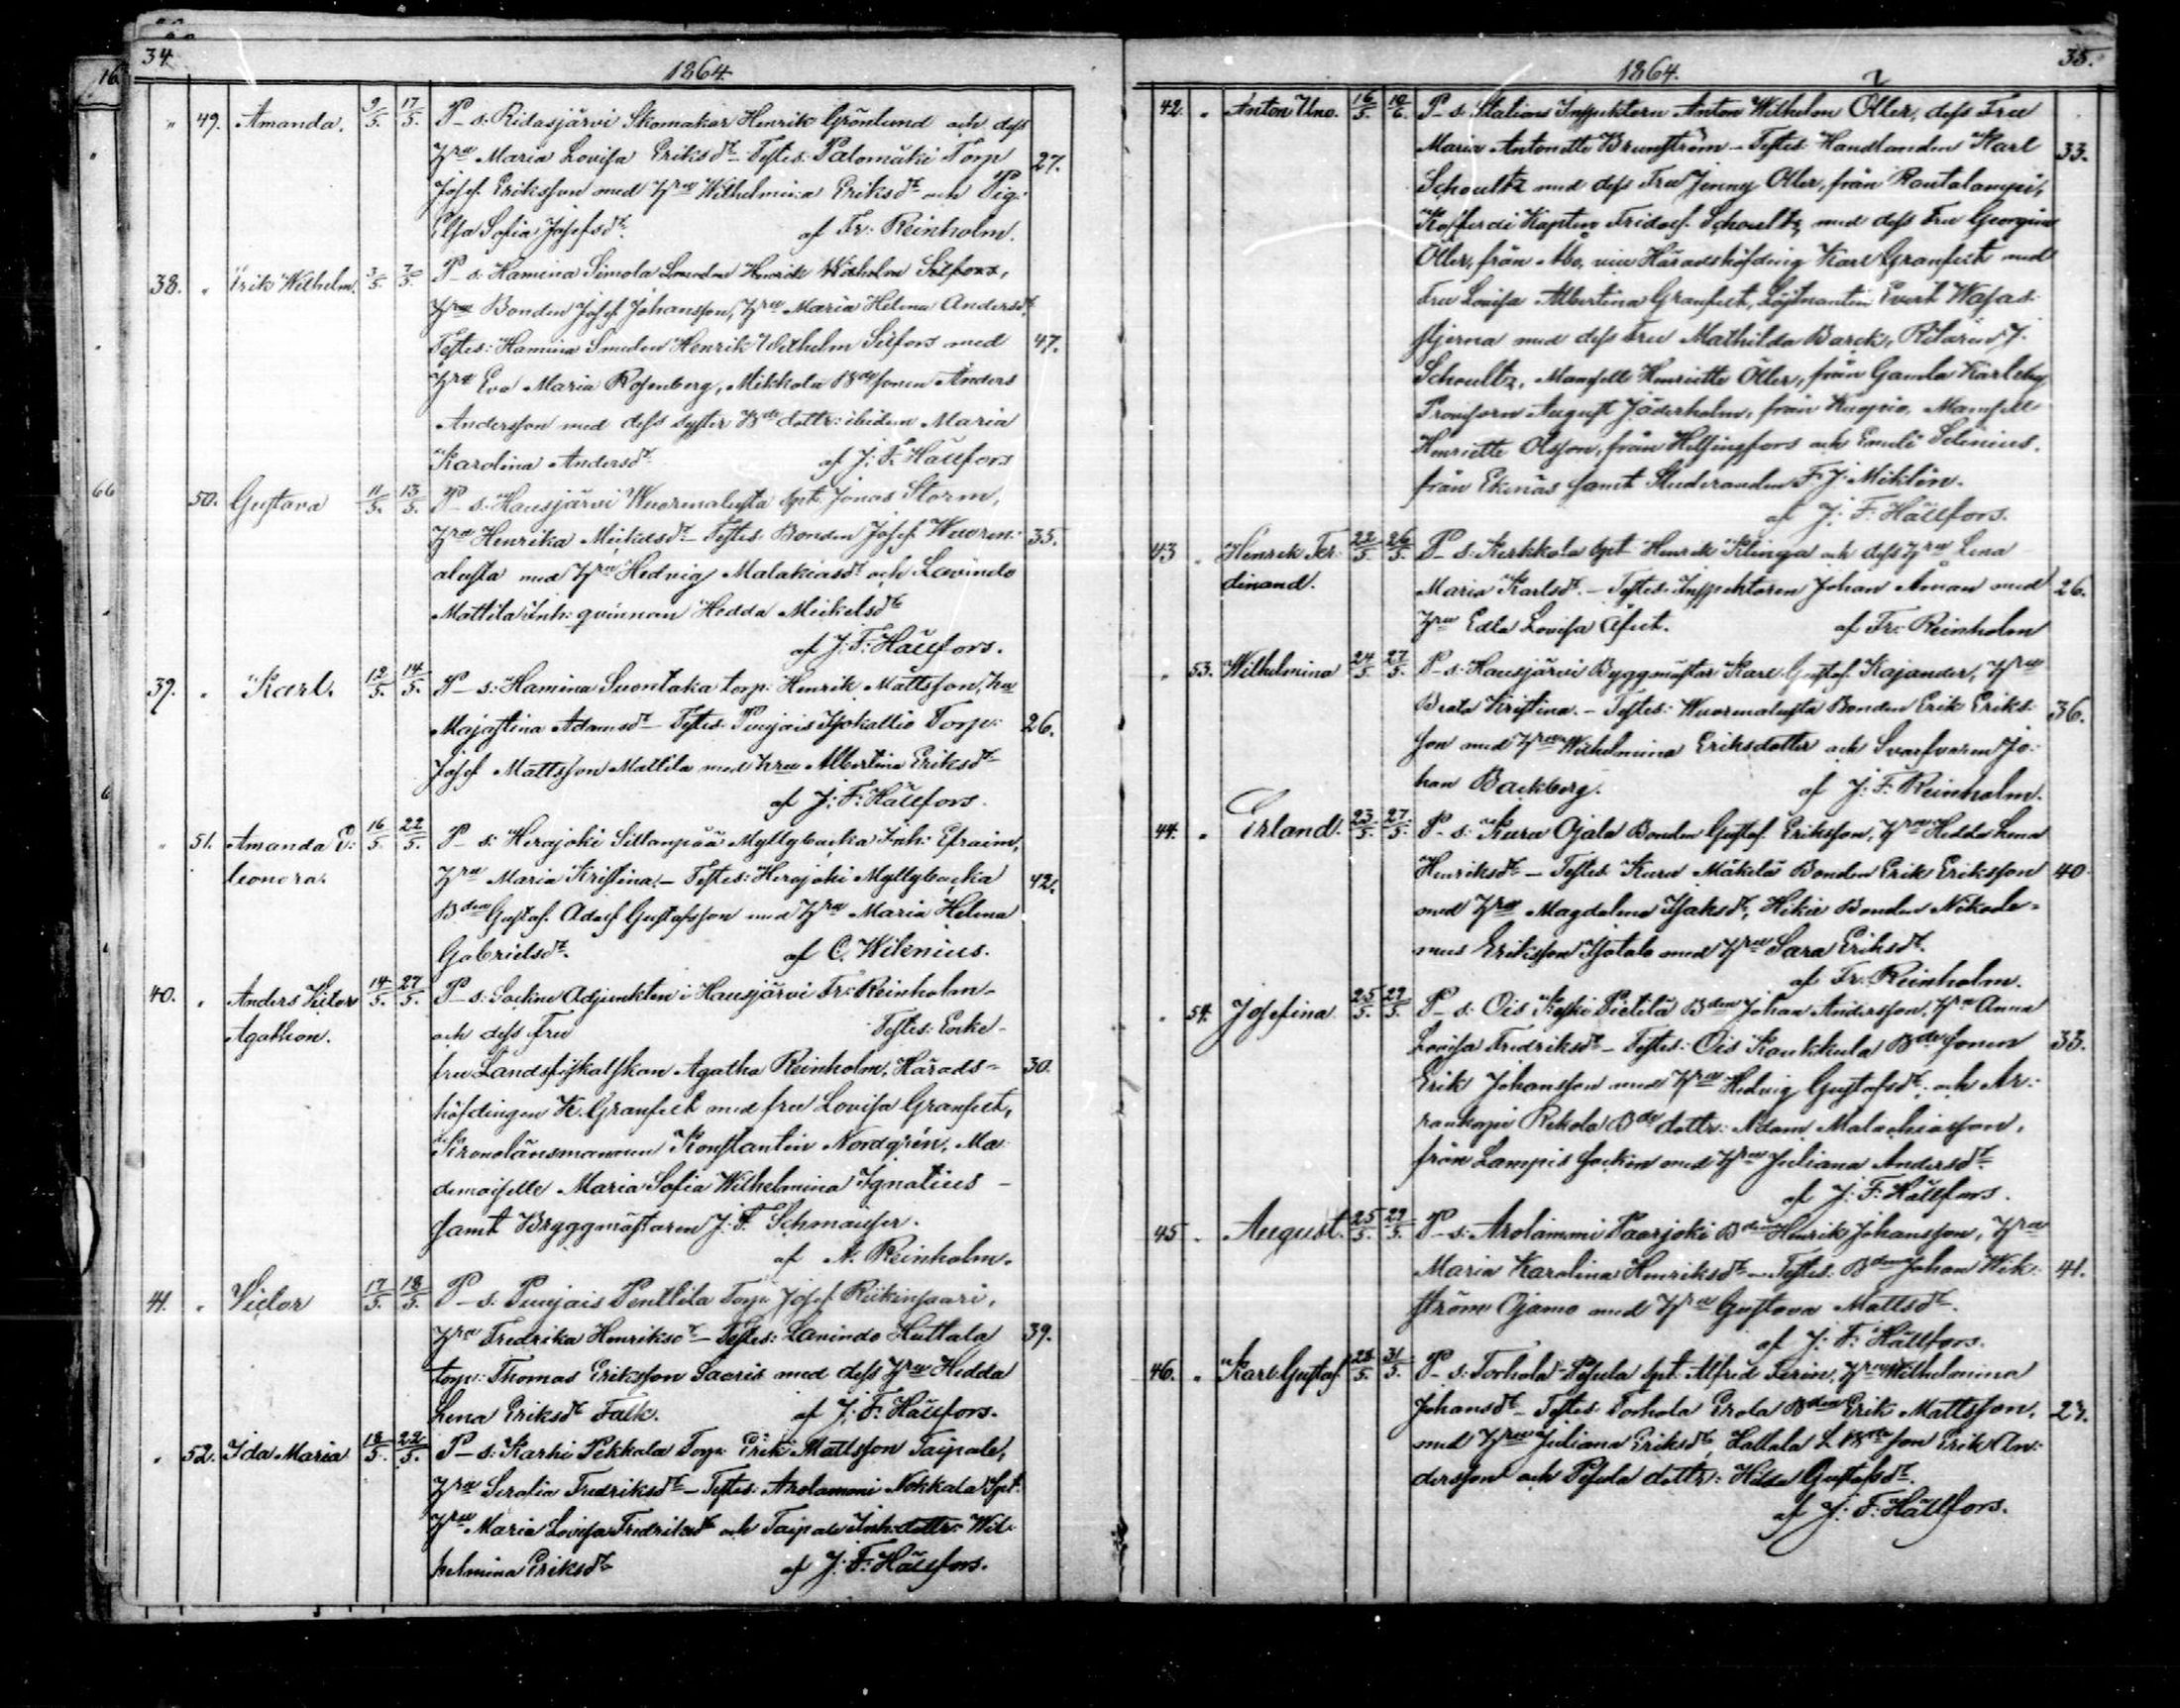 34.
1864.
" 49. Amanda. 9/5. 17/5. P_ s: Ridasjärvi Skomakar Henrik Grönlund och dess
Hru Maria Lovisa Eriksdt – Testes: Palomäki Torp 27.
Josef Eriksson med Hru Wilhelmina Eriksdt och Pig:
Elsa Sofia Josefsdt. af Fr: Reinholm.
38. " Erik Wilhelm. 3/5. 7/5. P_ s: Hamina Simola Henrik Wilhelm Silfors,
Hru Bonden Josef Johansson, Hru Maria Helena Andersdt,
Testes: Hamina Smeden Henrik Wilhelm Silfors med 47.
Hru Eva Maria Rosenberg, Mikkola Bdesonen Anders
Andersson med dess syster Bde dottr: ibidem Maria
Karolina Andersdt. af J: F: Hällfors
50. Gustava 11/5. 13/5. P_ s: Hausjärvi Wuorenalusta Spt. Jonas Storm,
Hru Henrika Mickelsdt – Testes: Bonden Josef Wuoren- 35.
alusta med Hru Hedvig Malakiasdt och Lavindo
Mattila Inh: qvinnan Hedda Mickelsdt
af J: F: Hällfors.
39. " Karl. 12/5. 14/5. P_ s: Hamina Suontaka torp: Henrik Mattsson, hu
Majastina Adamsdt – Testes: Punjais Isokallio Torp: 26.
Josef Mattsson Mattila med hru Albertina Eriksdt
af J: F: Hällfors.
" 51. Amanda E: 16/5. 22/5. P_ s: Herajoki Sillanpää Myllybacka Inh: Efraim,
leonora. Hru Maria Kristina. – Testes: Herajoki Myllybacka 42.
Bden Gustaf Adolf Gustafsson med Hru Maria Helena
Gabrielsdt. af C. Wilenius.
40. " Anders Victor 14/5. 27/5. P_ s: Sockne Adjunkten i Hausjärvi Fr: Reinholm
Agathon. och dess Fru Testes: Enke-
fru Landsfiskalskan Agatha Reinholm, Härads- 30.
höfdingen K. Granfelt med fru Lovisa Granfelt,
Kronolänsmannen Konstantin Nordgrén, Ma
demoiselle Maria Sofia Wilhelmina Ignatius –
samt Bryggmästaren J: F. Schmauser.
af A. Reinholm.
41. " Victor 17/5. 18/5. P_ s: Punjais Penttila Torp: Josef Riikinsaari,
Hru Fredrika Henriksdt – Testes: Lanindo Huttala 39.
torp: Thomas Eriksson Saaris med dess Hru Hedda
Lena Eriksdt Falk. af J: F: Hällfors.
" 52. Ida Maria 18/5. 22/5. P_ s: Karhi Pekkala Torp: Erik Mattsson Taipale,
Hru Seralia Fredriksdt – Testes: Arolammi Nokkala Spt:
Hru Maria Lovisa Fredriksdt och Taipale Inh: dottr: Wil-
helmina Eriksdt af J: F: Hällfors.
35.
1864.
42. " Anton Uno. 16/5. 10/6. P_ s: Stations Inspektoren Anton Wilhelm Öller, dess Fru
Maria Antonette Brunström – Testes: Handlanden Karl 33.
Schoultz med dess Fru Jenny Öller, från Rautalampi,
Kofferdi Kapten Fridolf Schoultz med dess Fru Georgina
Öller, från Åbo, vice Häradshöfding Karl Granfelt med
Fru Lovisa Albertina Granfelt, Löjtnanten Evert Wasas-
stjerna med dess Fru Mathilda Barck, Ritaren J.
Schoultz, Mamsell Henriette Öller, från Gamla Karleby
Provisorn August Jäderholm, från Kuopio, Mamsell
Henriette Olsson, från Helsingfors och Emeli Selenius,
från Ekenäs samt Studeranden F. J. Miklin.
af J: F: Hällfors.
43 " Henrik Fer: 22/5. 26/5. P_ s: Kerkkola Spt Henrik Klinga och dess Hru Lena
dinand. Maria Karlsdt. – Testes: Inspektoren Johan Åman med 26.
Hru Edla Lovisa af Fr: Reinholm
" 53. Wilhelmina 24/5. 27/5. P_ s: Hausjärvi Byggmästar Karl Gustaf Kajander, Hru
Beata Kristina. – Testes: Wuorenalusta Bonden Erik Eriks- 36.
son med Hru Wilhelmina Eriksdotter och Svarfvaren Jo-
han Backberg. af J: F: Reinholm.
44. " Erland. 23/5. 27/5. P_ s: Kuru Ojala Bonden Gustaf Eriksson, Hru Hedda Lena
Henriksdt – Testes: Kuru Mäkelä Bonden Erik Eriksson 40
med Hru Magdalena Isaksdt, Hikie Bonden Nikode-
mus Eriksson Isotalo med Hru Sara Eriksdt.
af Fr: Reinholm.
" 54. Josefina 25/5. 29/5. P_ s: Ois Keski Pietilä Bden Johan Andersson, Hru Anna
Lovisa Fredriksdt – Testes: Ois Kaukkula Bdesonen 33.
Erik Johansson med Hru Hedvig Gustafsdt. och Ar-
rankapi Rekola Bde dottr: Adam Malachiasson,
från Lampis socken med Hru Juliana Andersdt.
af J: F: Hällfors.
45 " August. 25/5. 29/5. P_ s: Arolammi Paarjoki Bden Henrik Johansson, Hru
Maria Karolina Henriksdt – Testes: Bden Johan Wik- 41.
ström Ojamo med Hru Gustava Mattsdt.
af J: F: Hällfors.
46. " Karl Gustaf 28/5. 31/5. P_ s: Torhola Pesula Spt: Alfred Ferin, Hru Wilhelmina
Johansdt – Testes: Torhola Erola Bden Erik Mattsson, 27.
med Hru Juliana Eriksdt, Hallala L Bde son Erik An-
dersson och Pesula dottr: Hilda Gustafsdt.
af J: F: Hällfors.
16
66